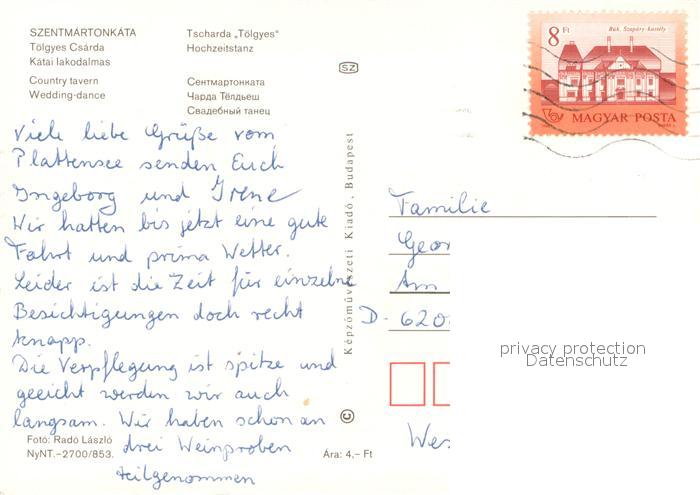 SZENTMÁRTONKÁTA
Tölgyes Csárda
Kátai lakodalmas
Country tavern
Wedding-dance
Tscharda „Tölgyes"
Hochzeitstanz
Сентмартонката
Чарда Тёлдьеш
Свадебный танец
SZ
8 Ft
Bük, Szapáry-kastély
MAGYAR POSTA
Viele liebe Grüße vom
Plattensee senden Euch
Ingeborg und Irene
Wir hatten bis jetzt eine gute
Fahrt und prima Wetter.
Leider ist die Zeit für einzelne
Besichtigungen doch recht
knapp.
Die Verpflegung ist spitze und
geeicht werden wir auch
langsam. Wir haben schon an
drei Weinproben
teilgenommen
Képzőművészeti Kiadó, Budapest
©
Familie
Geor
Am
D- 620
Wes
privacy protection
Datenschutz
Fotó: Radó László
NyNT.–2700/853.
Ára: 4,– Ft